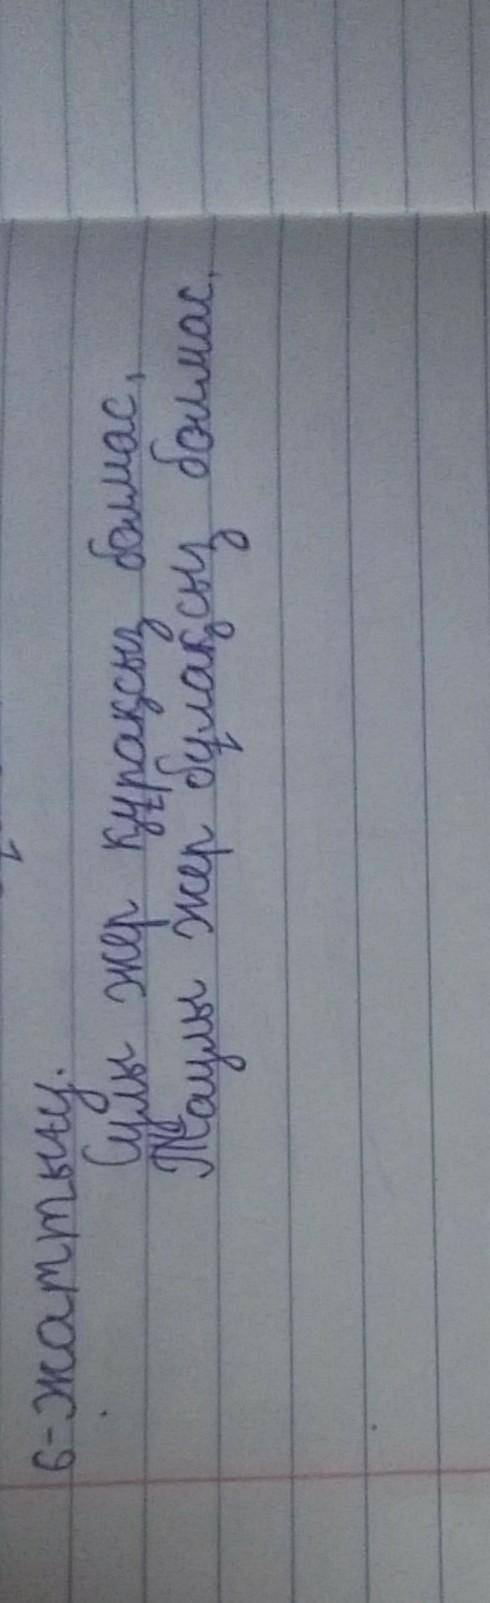 6-жаттығу.
Сулы жер құрақсыз болмас,
Таулы жер бұлақсыз болмас.